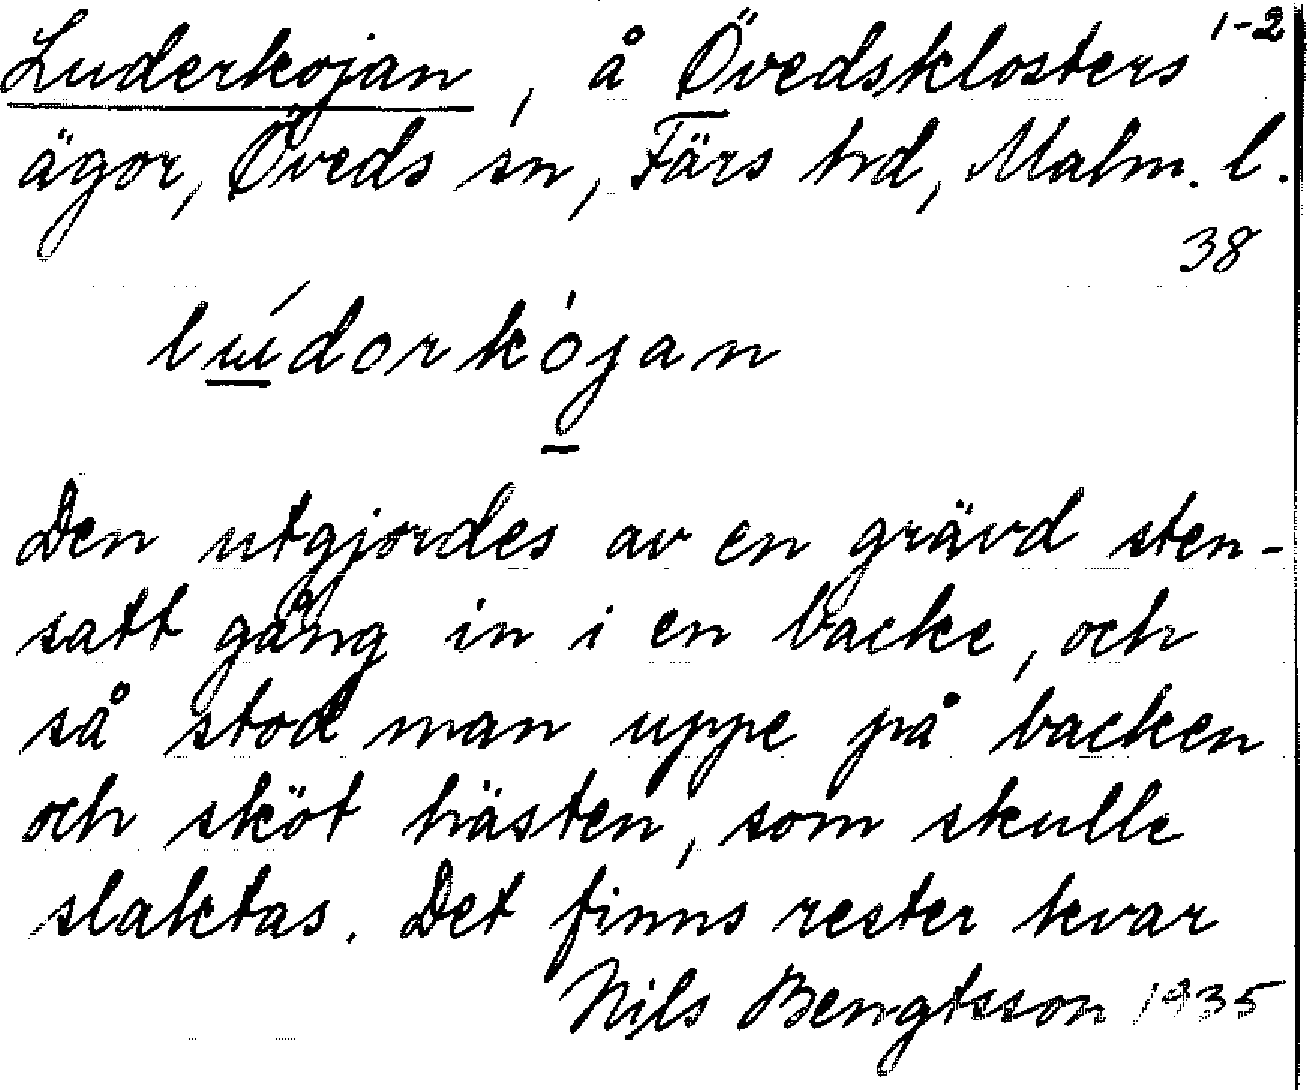 Luderkojan, å Övedsklosters 1-2
ägor, Öveds sn, Färs hd, Malm. l.
38
Den utgjordes av en grävd sten-
satt gång in i en backe, och
så stod man uppe på backen
och sköt hästen, som skulle
slaktas. Det finns rester kvar
Nils Bengtsson 1935